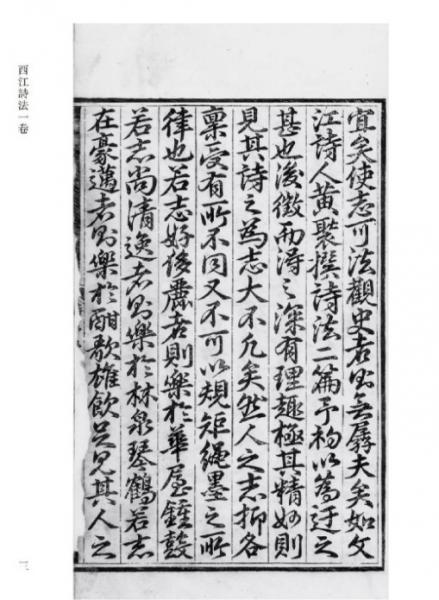 宜矣使志可法觀史者則無孱夫矣如文
江詩人黄聚撰詩法一篇予初以為迂之
甚也後徵而淂之深有理趣極其精妙則
見其詩之為志大不凢矣然人之志抑各
稟受有所不同又不可以規矩繩墨之所
律也若志好侈麗者則樂於華屋鐘鼓
若志尚清逸者則樂於林泉琴鶴若志
在豪邁者則樂於酣歌雄飲足見其人之
西江詩法一卷
三